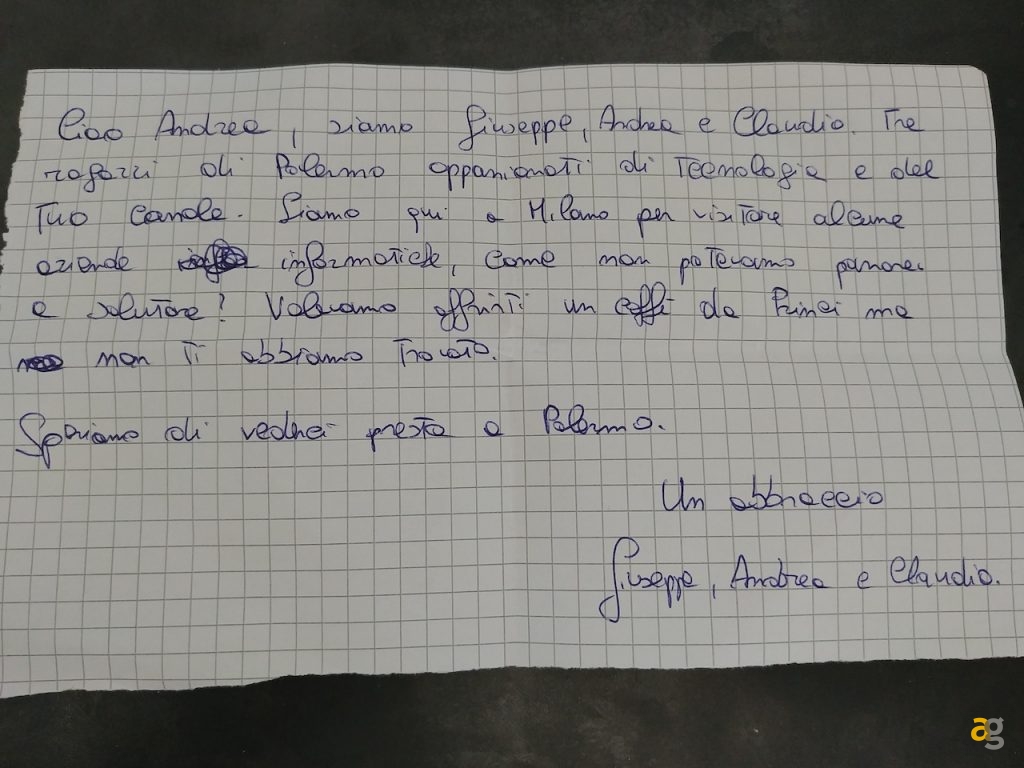 Ciao Andrea, siamo Giuseppe, Andrea e Claudio. Tre
ragazzi di Palermo appassionati di Tecnologia e del
Tuo canale. Siamo qui a Milano per visitare alcune
aziende informatiche, come non potevamo passare
e salutare? Volevamo offrirti un caffè da Princi ma
non Ti abbiamo Trovato.
Speriamo di vederci presto a Palermo.
Un abbraccio
Giuseppe, Andrea e Claudio.
ag